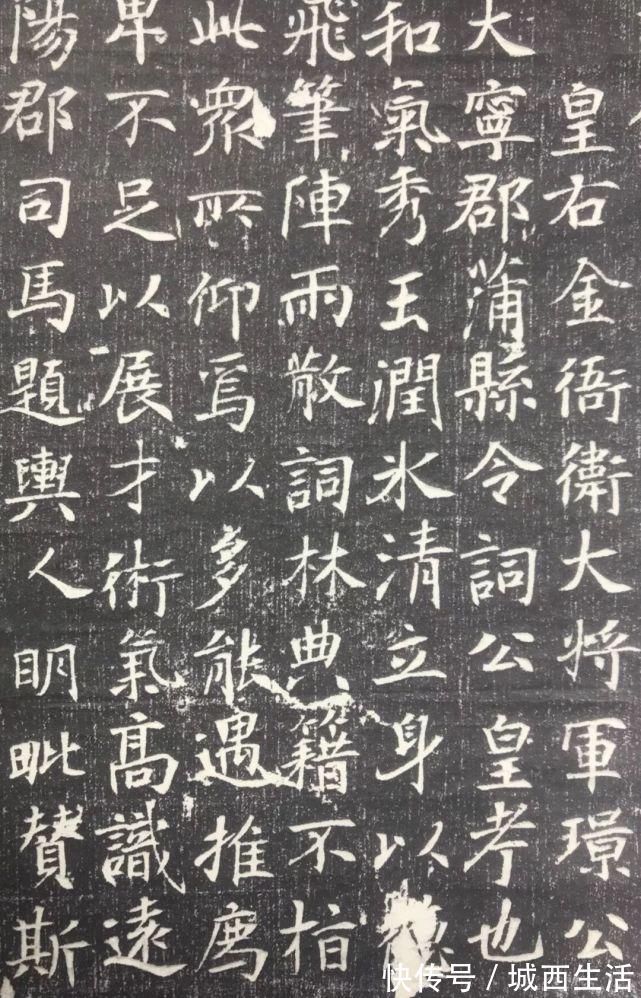 皇右金衙衛大將軍璟公
大寧郡蒲縣令詞公皇考也
和氣秀玉潤冰清立身以德
飛筆陣雨散詞林典籍不
此眾所仰焉以多能遇推
卑不足以展才術氣高識遠
陽郡司馬題輿人明毗贊斯
快传号/城西生活